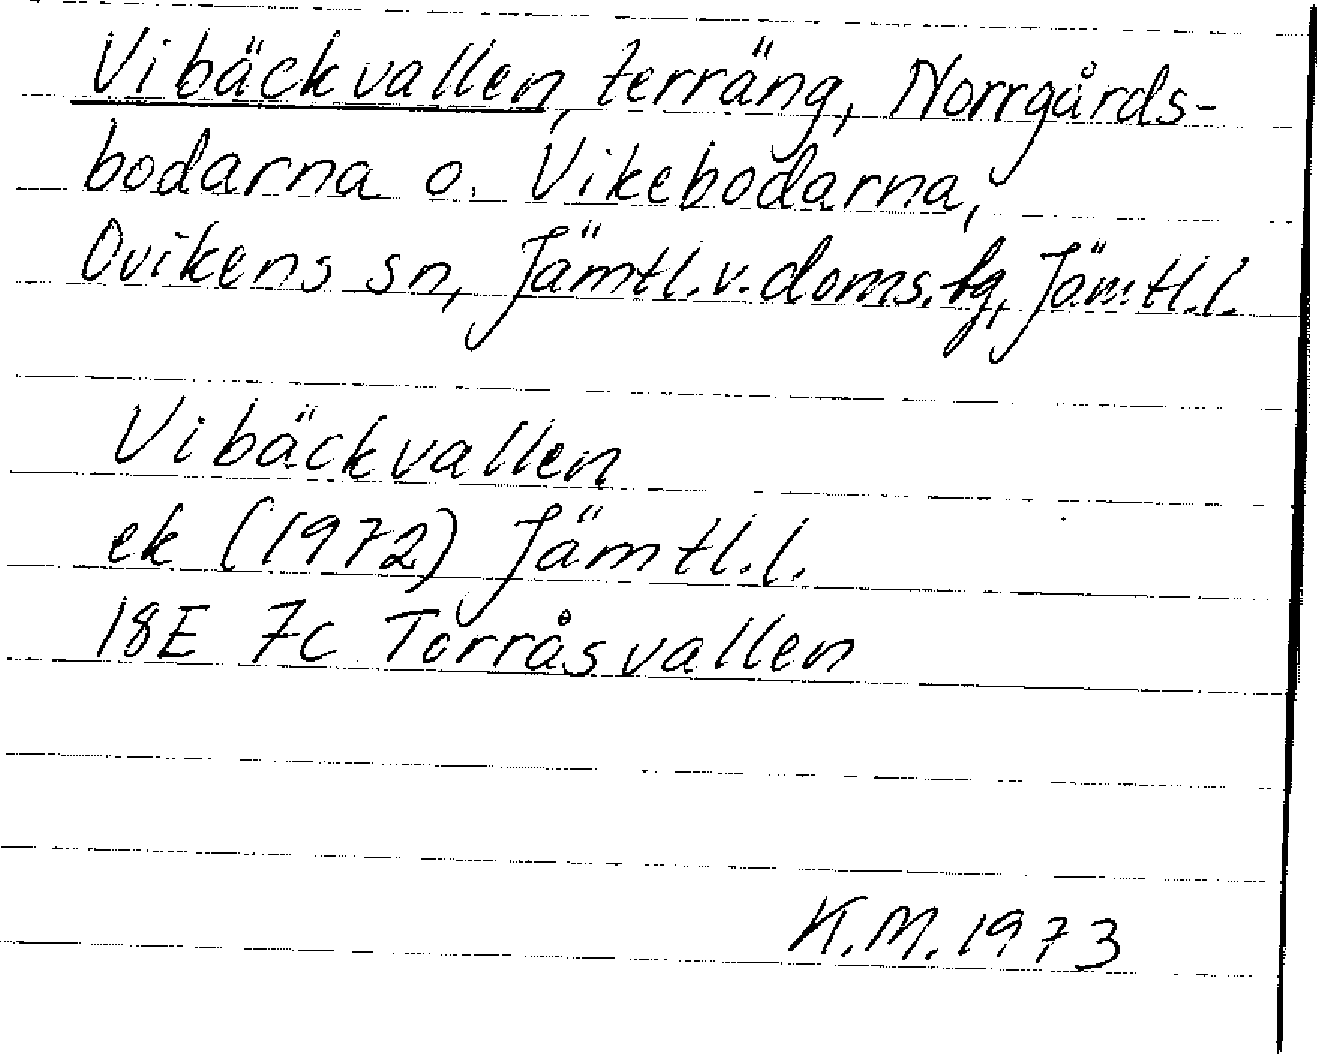 Vibäckvallen, terräng, Norrgårds-
bodarna o. Vikebodarna,
Ovikens sn, Jämtl.v.doms.tg, Jämtl.l.
Vibäckvallen
ek (1972) Jämtl.l.
18E 7c Torråsvallen
K.M.1973